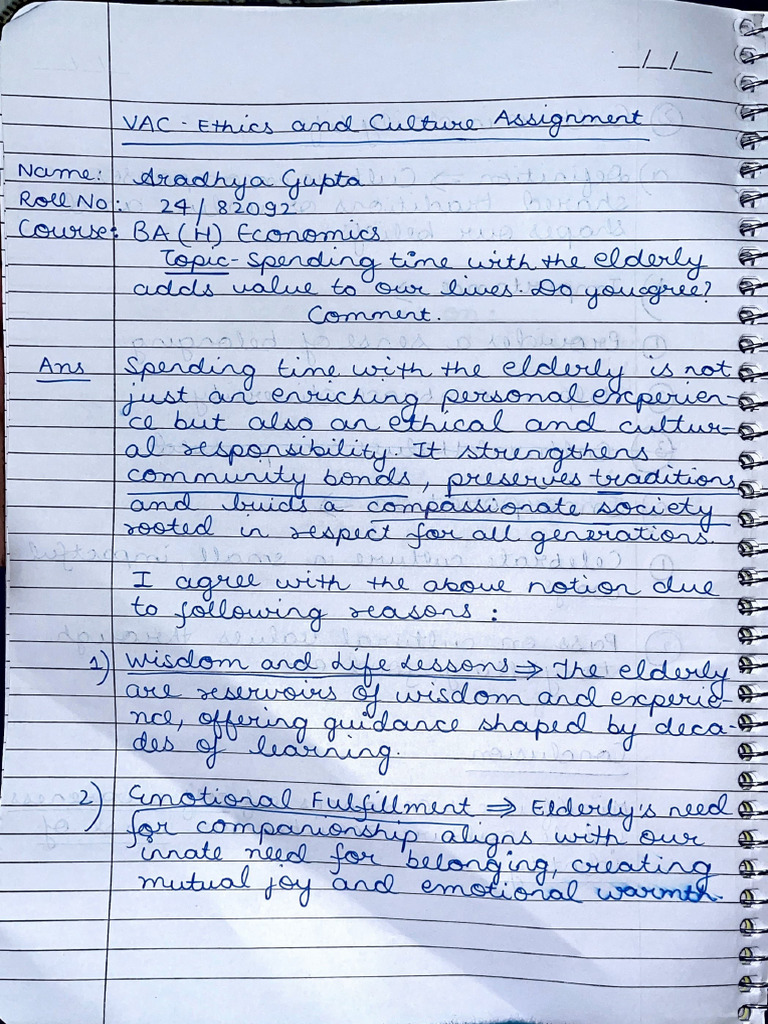 _/_/_
VAC - Ethics and Culture Assignment
Name: Aradhya Gupta
Roll No: 24/82092
Course: BA(H) Economics
Topic- Spending time with the elderly
adds value to our lives. Do you agree?
Comment.
Ans Spending time with the elderly is not
just an enriching personal experien-
ce but also an ethical and cultur-
al responsibility. It strengthens
community bonds, preserves traditions
and buids a compassionate society
rooted in respect for all generations.
I agree with the above notion due
to following reasons :
1) Wisdom and Life Lessons ⇒ The elderly
are reservoirs of wisdom and experie-
nce, offering guidance shaped by deca-
des of learning.
2) Emotional Fulfillment ⇒ Elderly's need
for companionship aligns with our
innate need for belonging, creating
mutual joy and emotional warmth.